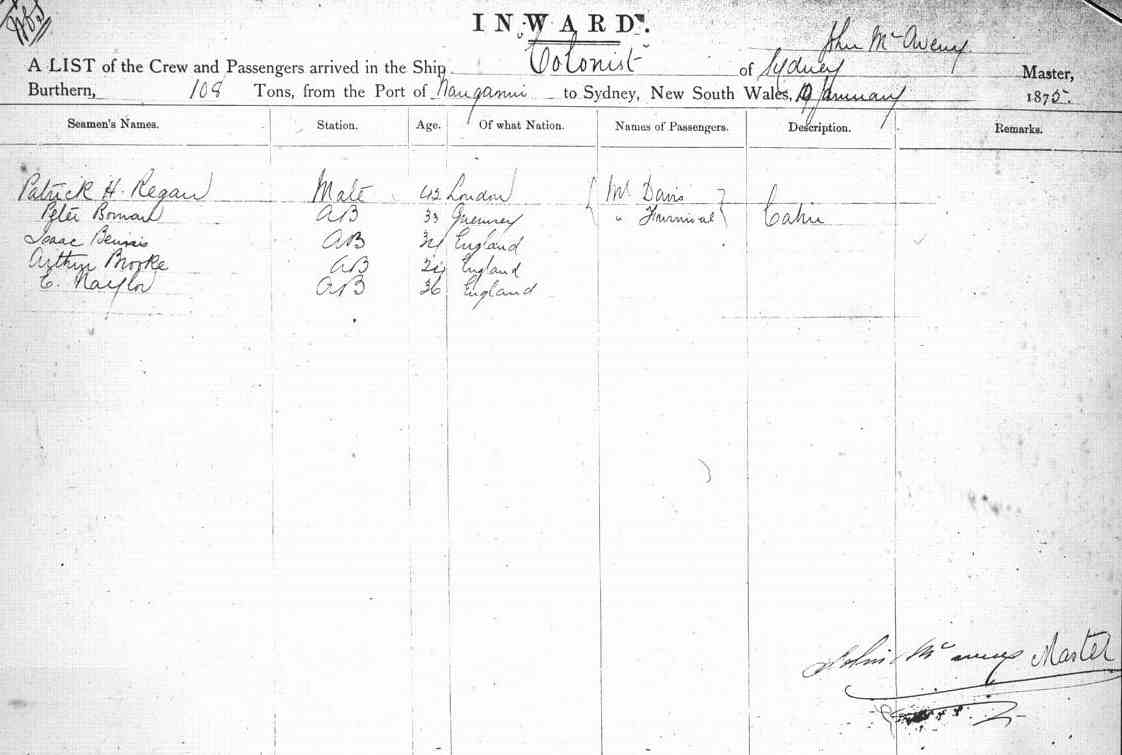 INWARD.
John McAveny
A LIST of the Crew and Passengers arrived in the Ship Colonist of Sydney Master,
Burthern, 108 Tons, from the Port of to Sydney, New South Wales, 19 January 1875.
Seamen's Names. Station. Age. Of what Nation. Names of Passengers. Description. Remarks.
Patrick H. Regan Mate 42 London Mr Davis
Peter Boman AB 33 Guernsey " Furnival Cabin
Isaac Bennis AB England
Arthur Brooke AB England
C. Naylor AB 36 England
John Master